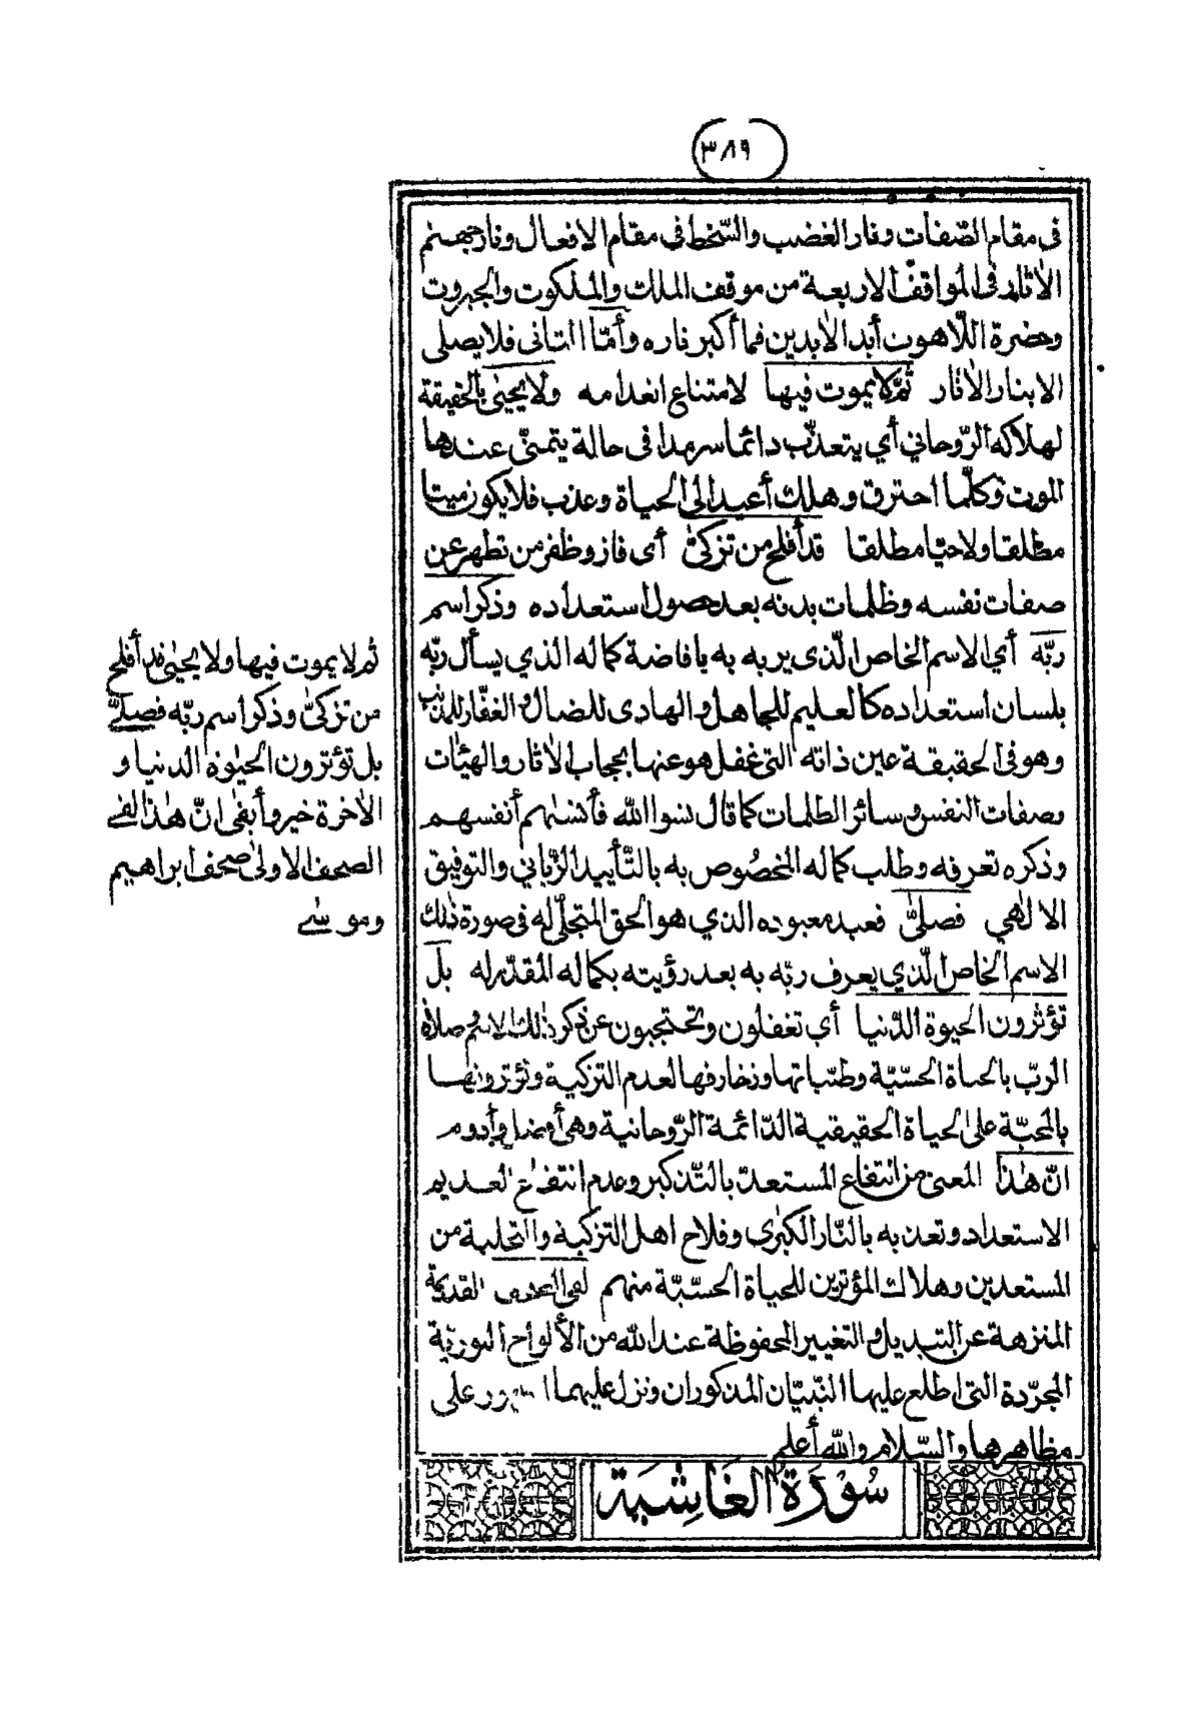 ٣٨٩
فى مقام الصّفات ونار الغضب والسّخط فى مقام الافعال ونار جهنم
الاٰثار فى المواقف الاربعة من موقف الملك والملكوت والجبروت
وحضرة اللّاهوت أبد الاٰبدين فما أكبر ناره وأمّا الثانى فلا يصلى
الا بنار الاٰثار ثمّ لا يموت فيها لامتناع انعدامه ولا يحيىٰ بالحقيقة
لهلاكه الرّوحاني أي يتعذّب دائما سرمدا فى حالة يتمنّى عندها
الموت وكلّما احترق وهلك أعيد الى الحياة وعذب فلا يكون ميتا
مطلقا ولا حيّا مطلقا قد أفلح من تزكىّٰ أى فاز وظفر من تطهر عن
صفات نفسه وظلمات بدنه بعد حصول استعداده وذكر اسم
ربّه أي الاسم الخاص الّذى يربه به بافاضة كماله الذي يسأل ربّه
بلسان استعداده كالعليم للجاهل والهادى للضال والغفّار للمذنب
وهو فى الحقيقة عين ذاته التى غفل هو عنها بحجاب الاٰثار والهيئات
وصفات النفس وسائر الظلمات كما قال نسوا الله فأنسٰهم أنفسهم
وذكره تعرفه وطلب كماله المخصُوص به بالتّأييد الرّباني والتوفيق
الالٰهي فصلىّٰ فعبد معبوده الذي هو الحق المتجلّي له فى صورة ذٰلك
الاسم الخاص الّذي يعرف ربّه به بعد رؤيته بكماله المقدّر له بل
تؤثرون الحيوة الدّنيا أي تغفلون وتحتجبون عن ذكر ذٰلك الاسم وصلاة
الربّ بالحياة الحسّيّة وطيّباتها وزخارفها لعدم التزكية وتؤثرونها
بالمحبّة على الحياة الحقيقية الدّائمة الرّوحانية وهى أفضل وأدوم
انّ هٰذا المعنى من انتفاع المستعدّ بالتّذكير وعدم انتفاع العديم
الاستعداد وتعذبه بالنّار الكبرٰى وفلاح اهل التزكية والتحلية من
المستعدين وهلاك المؤثرين للحياة الحسّيّة منهم لفى الصحف القديمة
المنزهة عن التبديل والتغيير المحفوظة عند الله من الألواح النوريّة
المجرّدة التى اطلع عليها النّبيّان المذكوران ونزل عليهما على
مظاهرها والسّلام والله أعلم
سُوْرَةُ الْغَاشِيَة
ثم لا يموت فيها ولا يحيىٰ قد أفلح
من تزكىّٰ وذكر اسم ربّه فصلىّٰ
بل تؤثرون الحيٰوة الدنيا و
الاٰخرة خير وأبقى انّ هٰذا لفى
الصحف الاولىٰ صحف ابراهيم
وموسٰى